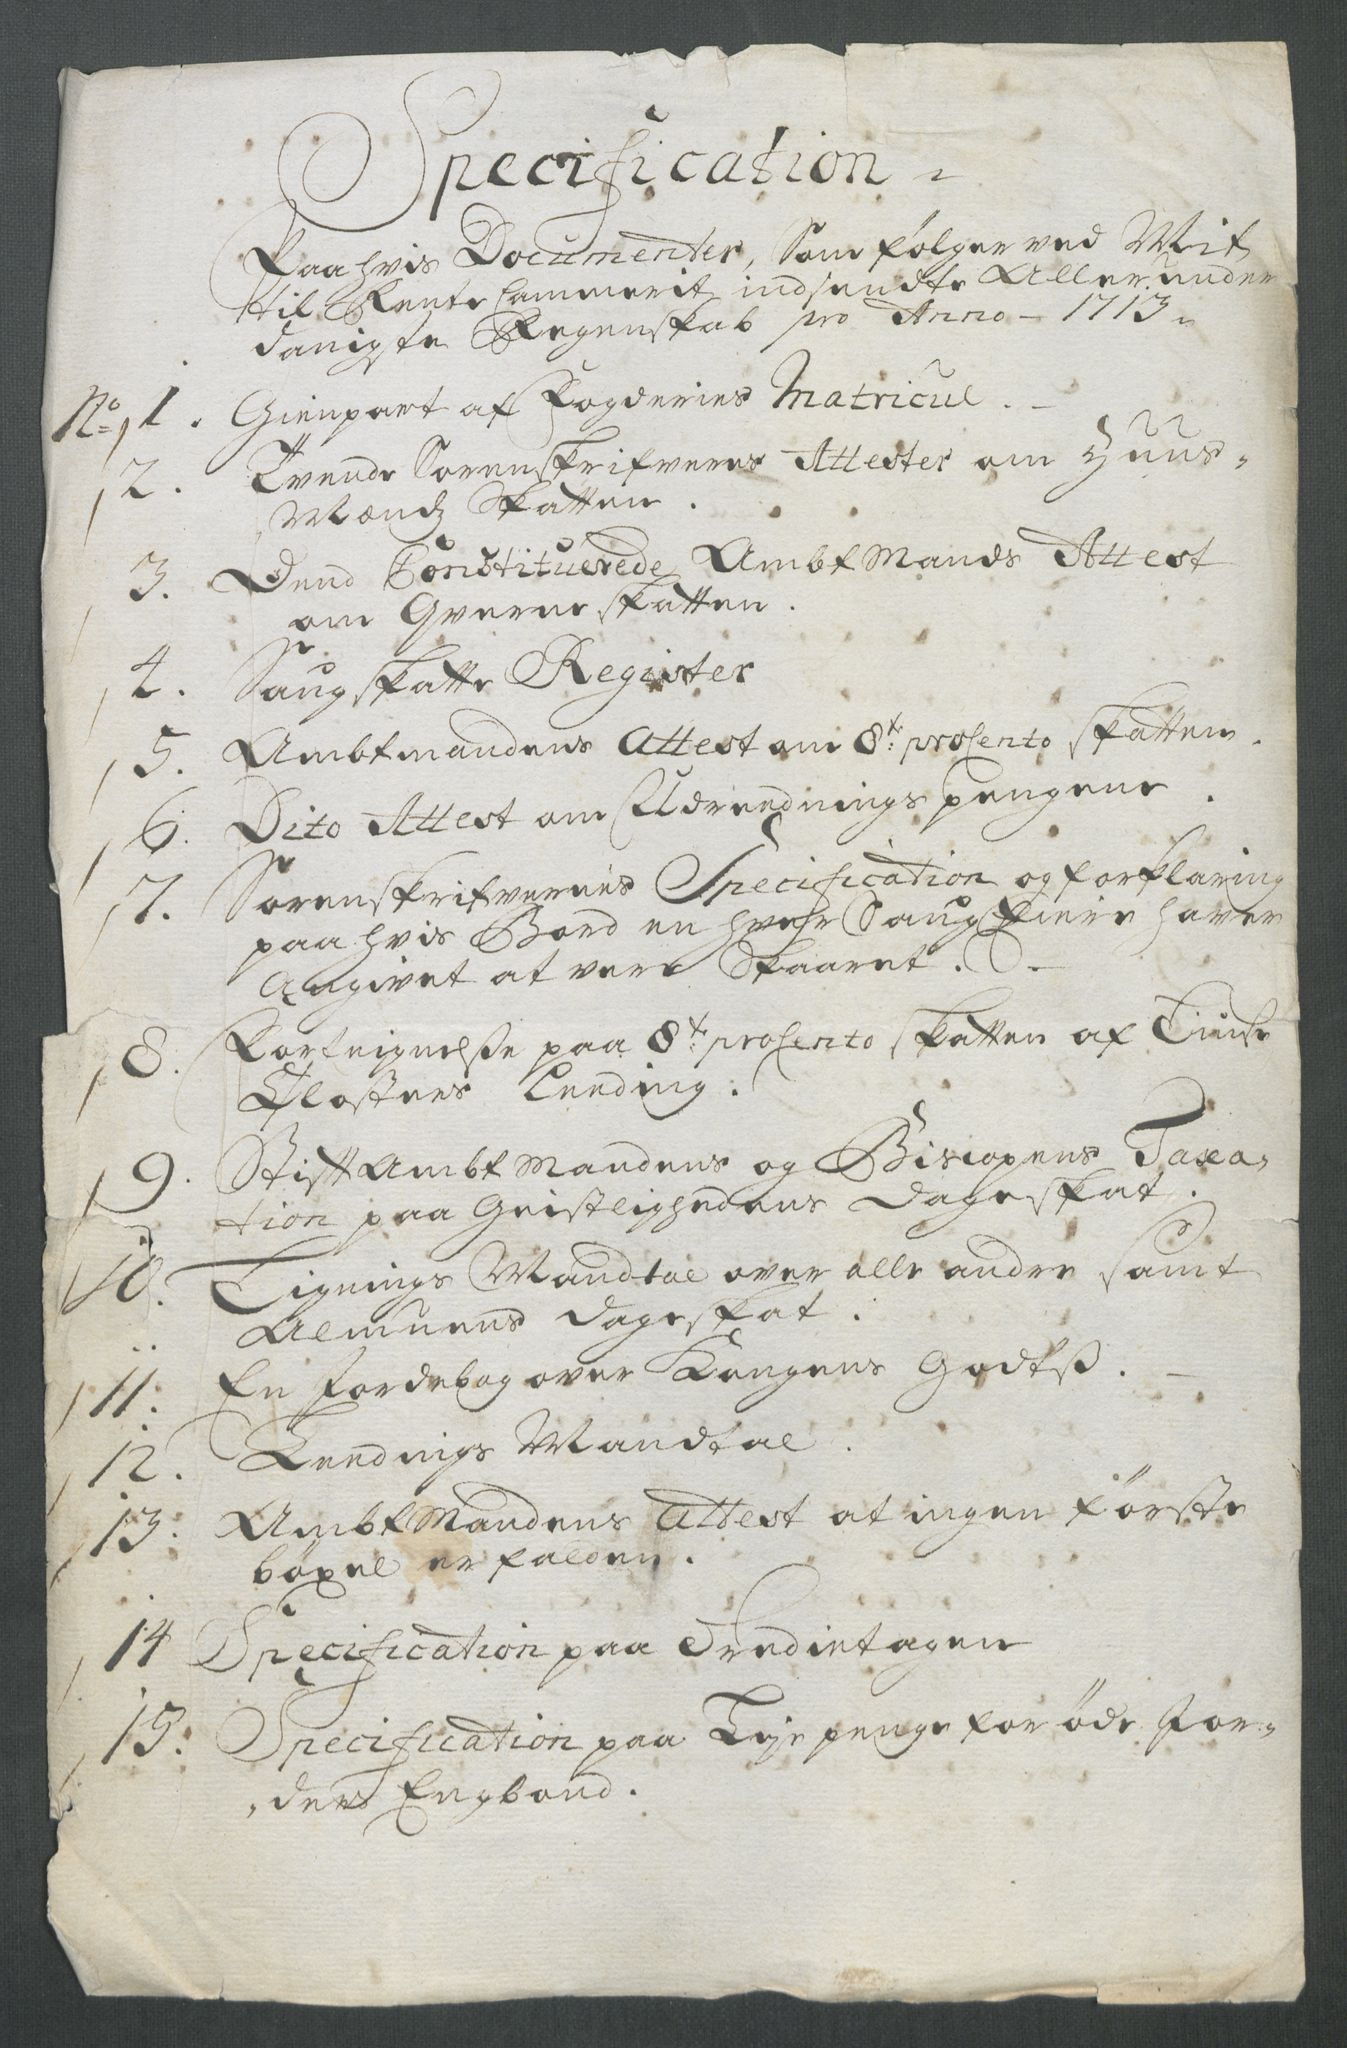 Specification
Paa hvis Documenter, Som følger ved Mit
til Rente Cammerit indsendte Allerunder
danigste Regenskab pro Anno 1713
No 1. Gienpart af Fogderies Matricul.
2. Tvende Sorenskrifveres Attester om Huus-
Mændz Skatten.
3. Dend Constituerede AmbtMands Attest
om Qverne skatten.
4. Saugskatte Register
5. Ambtmandens Attest om 8t: prosento skatten.
6. Dito Attest om Udreednings pengene.
7. Sorenskrifvernes Specification og forklaring
paa hvis Bord en hvehr Saug Eiere haver
Angivet at vere Skaaret.
8. Forteignelsse paa 8t: prosento skatten af
Closters Leeding.
9. StiftAmbtMandens og Biscopens Taxa-
tion paa Geistlighedens Dageskat.
10. Lignings Mandtal over alle andre samt
Almuens dageskat.
11. En Jordebog over Kongens Godtss.
12. Leednigs Mandtal.
13. AmbtMandens Attest at ingen første
böxel er falden.
14 Specification paa Tredietagen
15. Specification paa Leje penge for øde Jor-
ders Engbond.